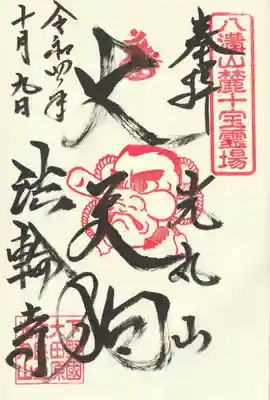 奉拝
八溝山麓十宝霊場
光丸山
大天狗
令和四年
十月九日
法輪寺
下野國
大田原